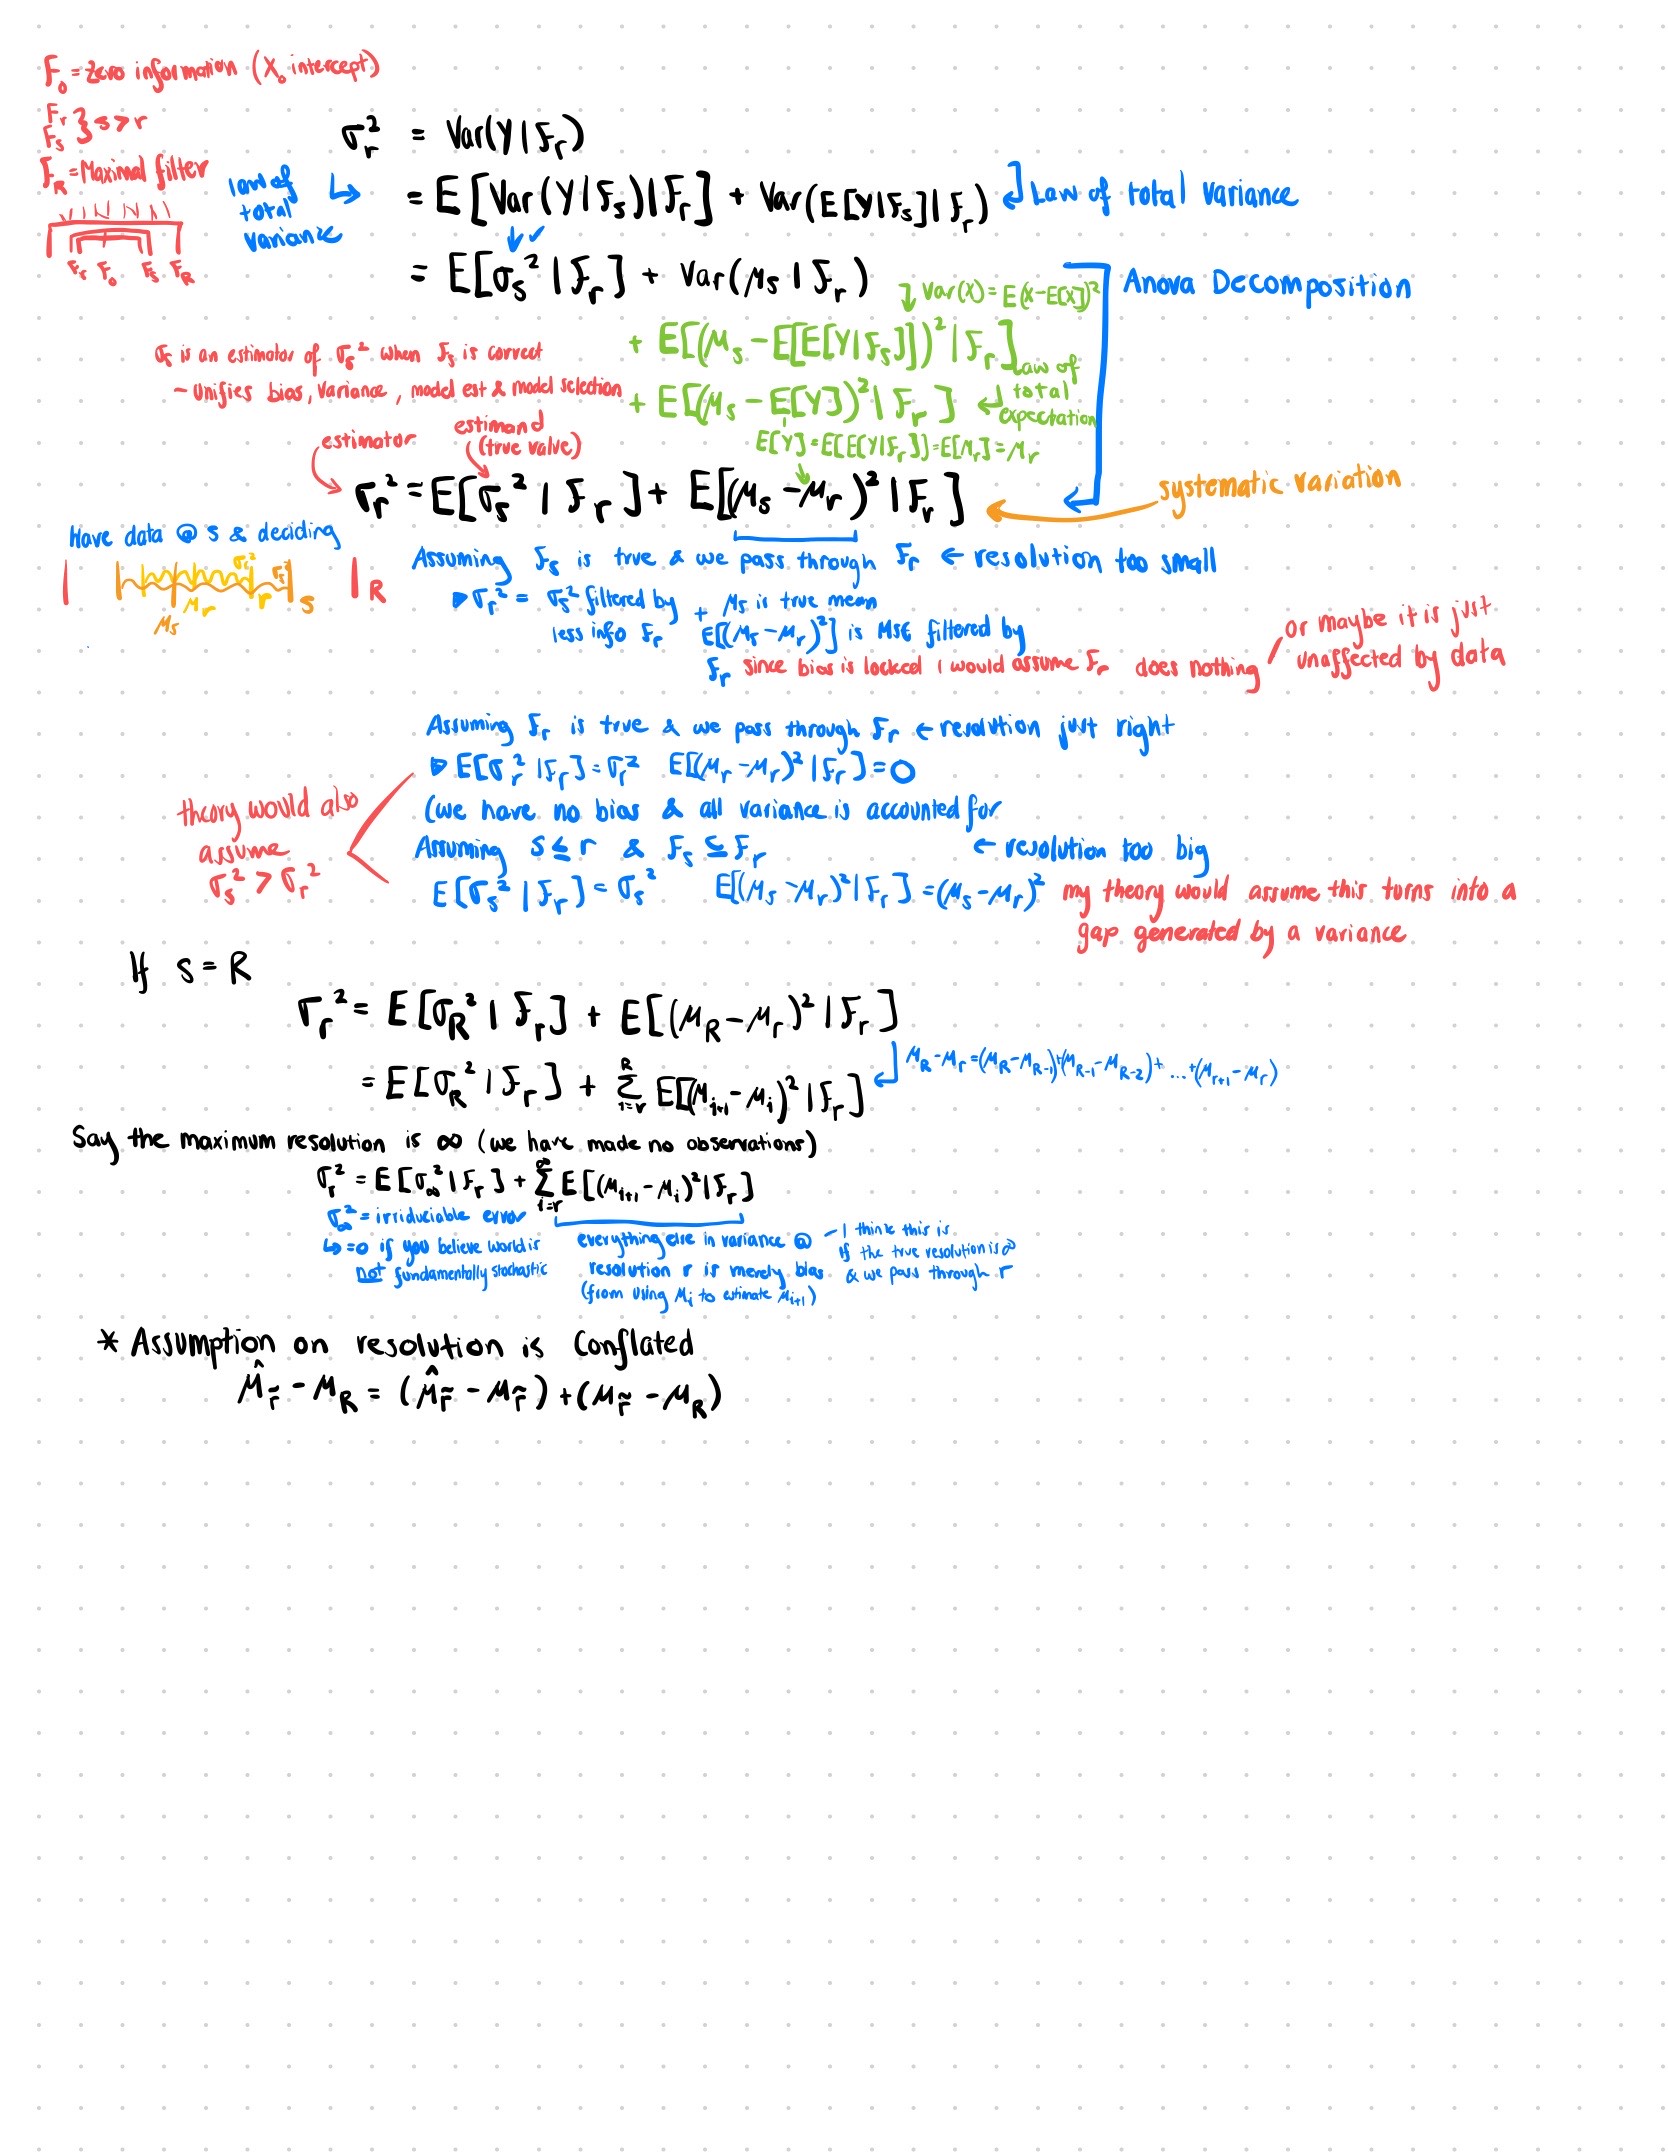 F₀ = Zero information (X₀ intercept)
Fr } s > r
Fs
F_R = Maximal filter
Fr F₀ Fs F_R
law of total variance ↳
σr² = Var(Y|Fr)
= E[Var(Y|Fs)|Fr] + Var(E[Y|Fs]|Fr) Law of total variance
= E[σs²|Fr] + Var(μs|Fr)
Anova Decomposition
Var(X) = E(X-E[X])²
+ E[(μs - E[E[Y|Fs]])²|Fr]
law of total expectation
+ E[(μs - E[Y])²|Fr]
E[Y] = E[E[Y|Fr]] = E[μr] = μr
σr is an estimator of σs² when Fs is correct
- Unifies bias, variance, model est & model selection
estimator
estimand (true value)
σr² = E[σs²|Fr] + E[(μs - μr)²|Fr]
systematic variation
Have data @ s & deciding
σr² σs² r s R
μs μr
Assuming Fs is true & we pass through Fr ← resolution too small
▷ σr² = σs² filtered by less info Fr + μs is true mean
E[(μs - μr)²] is MSE filtered by
Fr since bias is locked I would assume Fr does nothing
or maybe it is just unaffected by data
Assuming Fr is true & we pass through Fr ← resolution just right
▷ E[σr²|Fr] = σr² E[(μr - μr)²|Fr] = 0
(we have no bias & all variance is accounted for
Assuming s ≤ r & Fs ⊆ Fr ← resolution too big
E[σs²|Fr] = σs² E[(μs - μr)²|Fr] = (μs - μr)² my theory would assume this turns into a
gap generated by a variance
theory would also
assume
σs² > σr²
If s = R
σr² = E[σ_R²|Fr] + E[(μ_R - μr)²|Fr]
= E[σ_R²|Fr] + Σ_{i=r}^{R} E[(μ_{i+1} - μ_i)²|Fr]
μ_R - μr = (μ_R - μ_{R-1}) + (μ_{R-1} - μ_{R-2}) + ... + (μ_{r+1} - μr)
Say the maximum resolution is ∞ (we have made no observations)
σr² = E[σ∞²|Fr] + Σ_{i=r}^{∞} E[(μ_{i+1} - μ_i)²|Fr]
σ∞² = irriduciable error
↳ = 0 if you believe world is
Not fundamentally stochastic
everything else in variance @
resolution r is merely bias
(from using μ_i to estimate μ_{i+1})
- I think this is
if the true resolution is ∞
& we pass through r
* Assumption on resolution is Conflated
μ̂_r̃ - μ_R = (μ̂_r̃ - μ_r̃) + (μ_r̃ - μ_R)